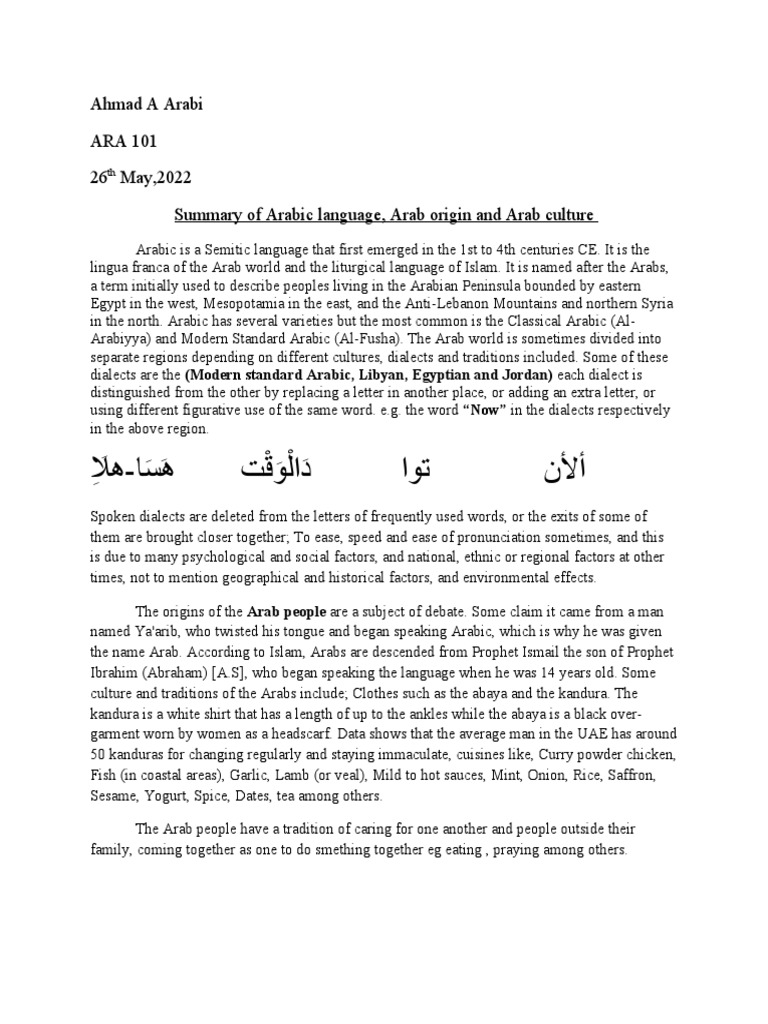 Ahmad A Arabi
ARA 101
26th May,2022
Summary of Arabic language, Arab origin and Arab culture
Arabic is a Semitic language that first emerged in the 1st to 4th centuries CE. It is the
lingua franca of the Arab world and the liturgical language of Islam. It is named after the Arabs,
a term initially used to describe peoples living in the Arabian Peninsula bounded by eastern
Egypt in the west, Mesopotamia in the east, and the Anti-Lebanon Mountains and northern Syria
in the north. Arabic has several varieties but the most common is the Classical Arabic (Al-
Arabiyya) and Modern Standard Arabic (Al-Fusha). The Arab world is sometimes divided into
separate regions depending on different cultures, dialects and traditions included. Some of these
dialects are the (Modern standard Arabic, Libyan, Egyptian and Jordan) each dialect is
distinguished from the other by replacing a letter in another place, or adding an extra letter, or
using different figurative use of the same word. e.g. the word “Now” in the dialects respectively
in the above region.
ألأن توا دَالْوَقْت هَسَا-هلَاِ
Spoken dialects are deleted from the letters of frequently used words, or the exits of some of
them are brought closer together; To ease, speed and ease of pronunciation sometimes, and this
is due to many psychological and social factors, and national, ethnic or regional factors at other
times, not to mention geographical and historical factors, and environmental effects.
The origins of the Arab people are a subject of debate. Some claim it came from a man
named Ya'arib, who twisted his tongue and began speaking Arabic, which is why he was given
the name Arab. According to Islam, Arabs are descended from Prophet Ismail the son of Prophet
Ibrahim (Abraham) [A.S], who began speaking the language when he was 14 years old. Some
culture and traditions of the Arabs include; Clothes such as the abaya and the kandura. The
kandura is a white shirt that has a length of up to the ankles while the abaya is a black over-
garment worn by women as a headscarf. Data shows that the average man in the UAE has around
50 kanduras for changing regularly and staying immaculate, cuisines like, Curry powder chicken,
Fish (in coastal areas), Garlic, Lamb (or veal), Mild to hot sauces, Mint, Onion, Rice, Saffron,
Sesame, Yogurt, Spice, Dates, tea among others.
The Arab people have a tradition of caring for one another and people outside their
family, coming together as one to do smething together eg eating , praying among others.